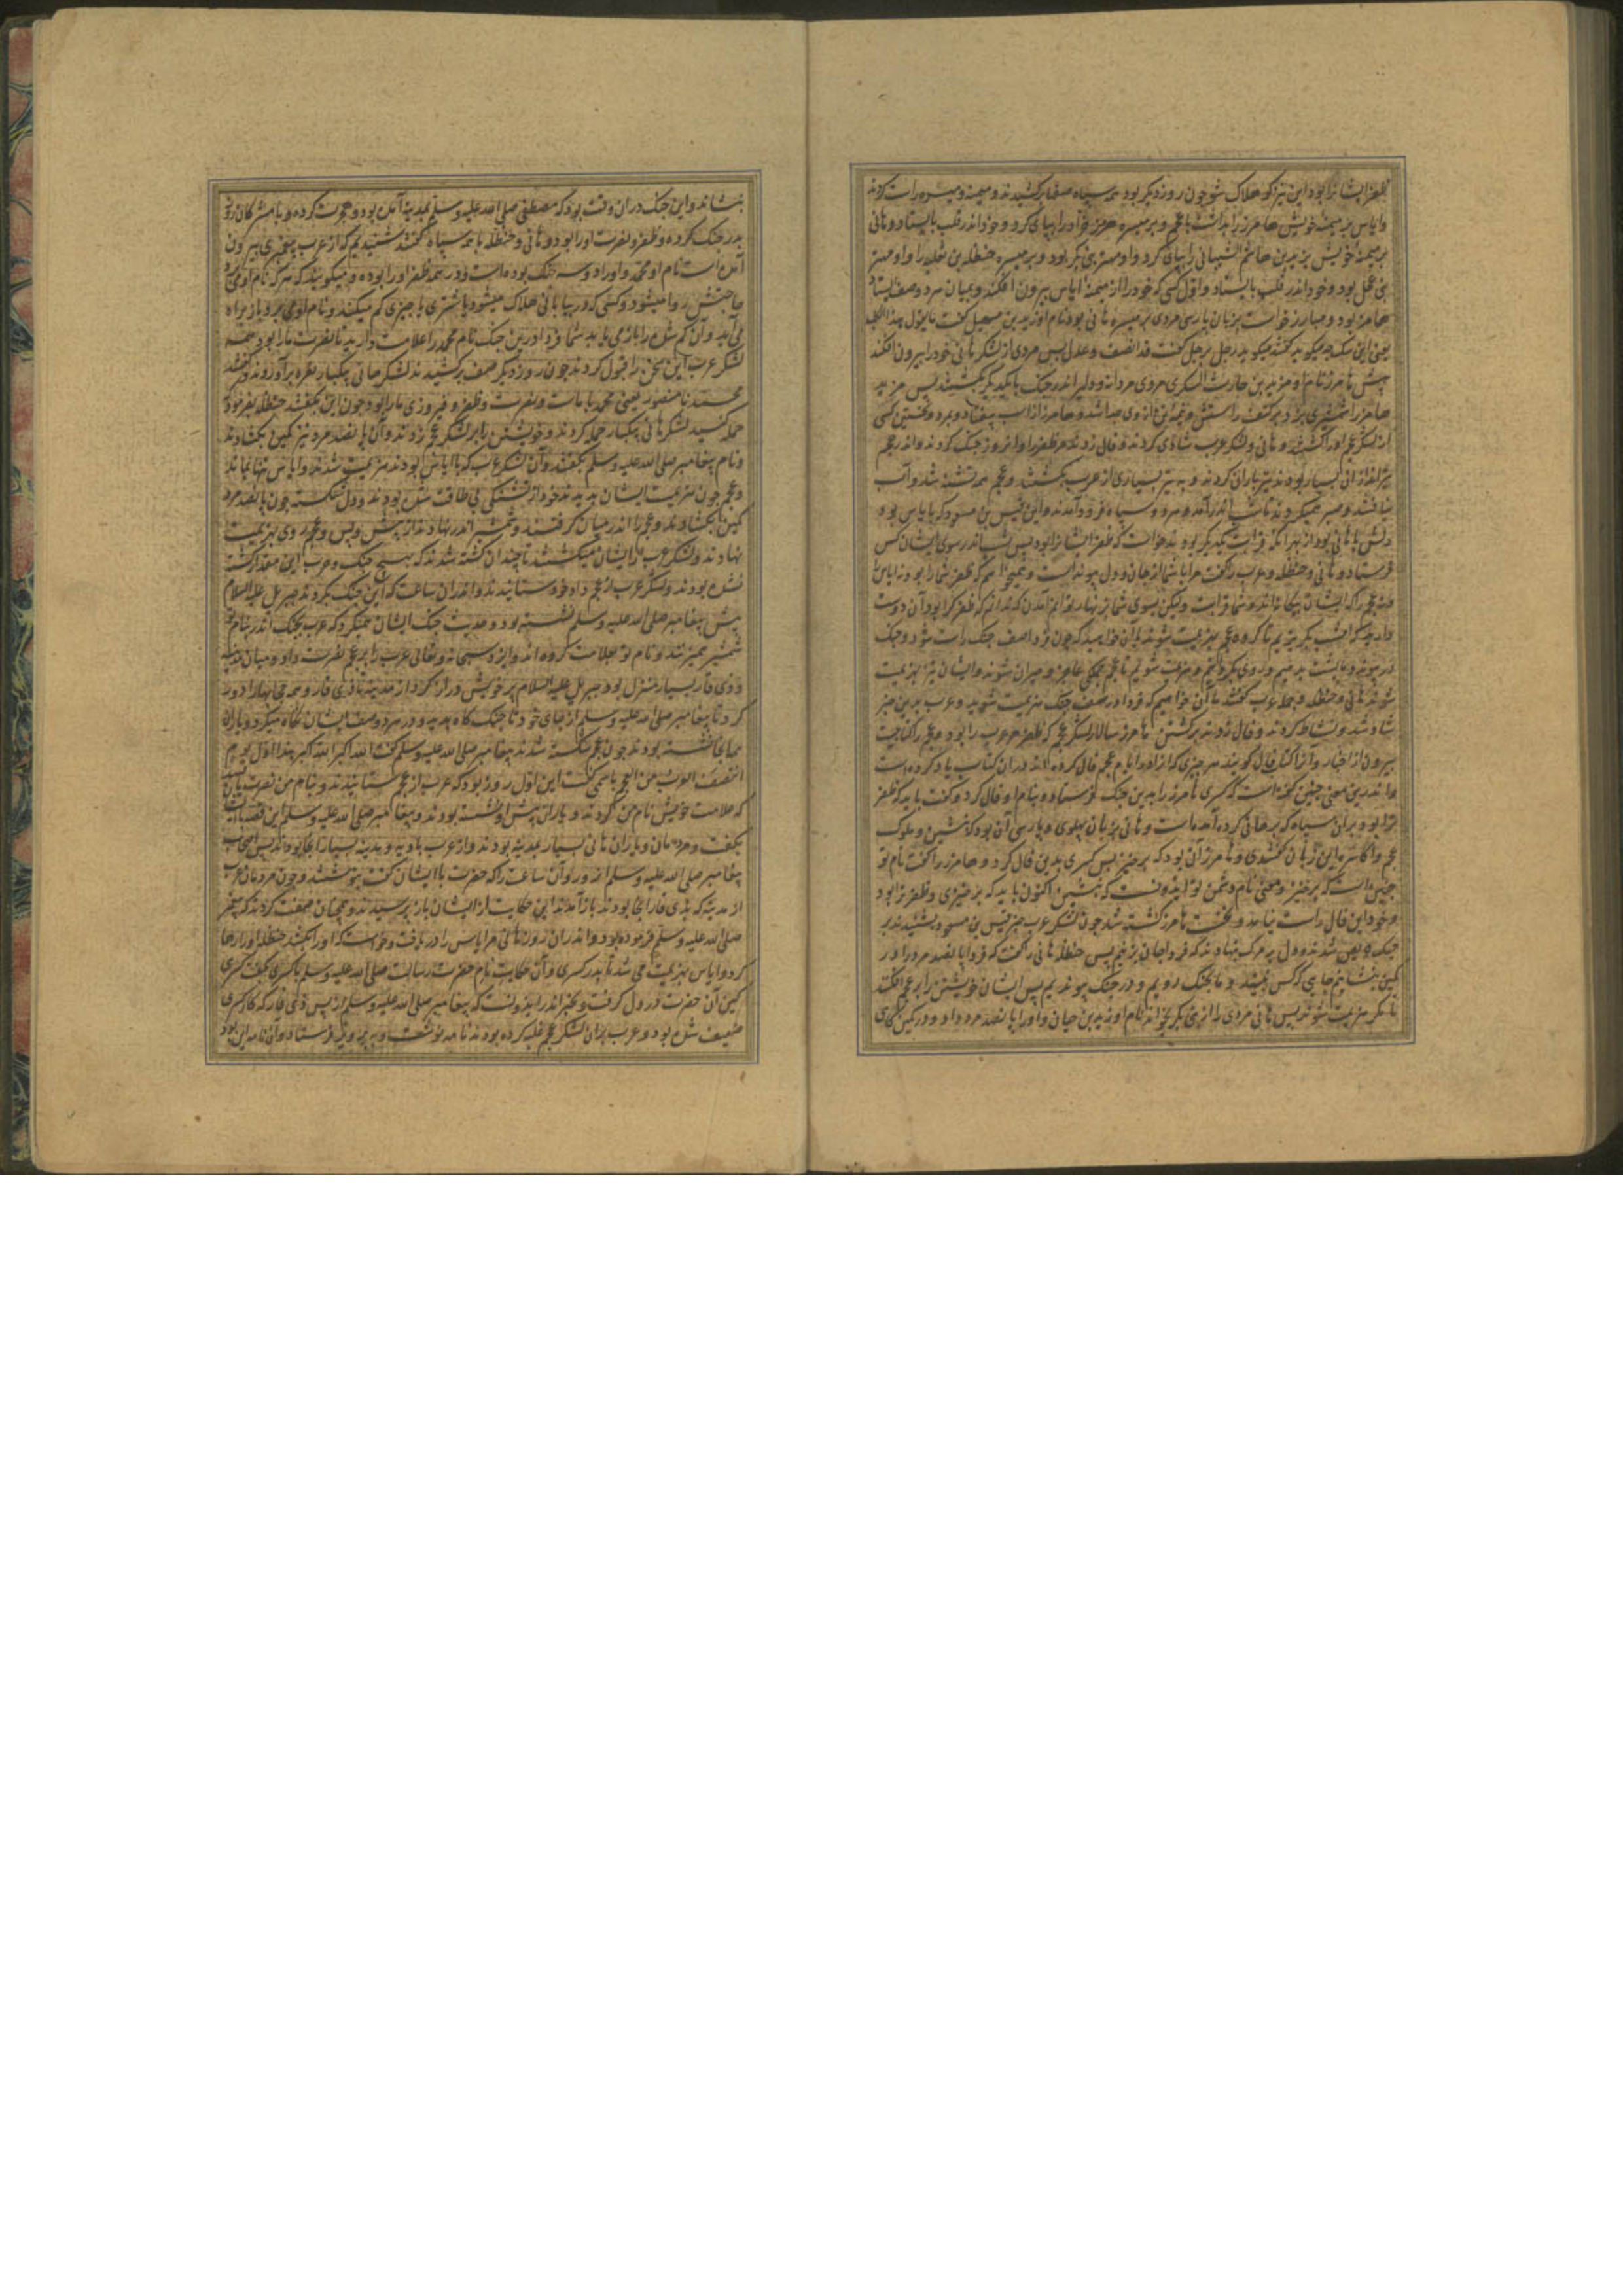 ظفر ایشانرا بود این نیز کو هلاک شو چون روز دیگر بود همه سپاه صفها برکشیدند و میمنه و میسره راست کردند
و ایاس بر میمنه خویش هامرز را بداشت با عجم و بر میسره هرمز خراد را بپای کرد و خود اندر قلب بایستاد و هانی
بر میمنه خویش یزید بن حاتم الشیبانی را بپای کرد و او مهتر بنی بکر بود و بر میسره حنظله بن ثعلبه را و او مهتر
بنی عجل بود و خود اندر قلب بایستاد و اول کسی که خود را از میمنه ایاس بیرون افکند و بمیان هر دو صف بایستاد
هامرز بود و مبارز خواست بزبان پارسی مردی بر میسره هانی بود نام او زید بن سهیل گفت ما یقول هذا الکلب
یعنی این سک چه میکوید گفتند میکوید رجل برجل گفت قد انصف و عدل پس مردی از لشکر هانی خود را بیرون افکند
پیش هامرز نام او مزید بن حارث الیشکری مردی مردانه و دلیر اندر جنک با یکدیگر بکشتند پس مزید
هامرز را شمشیری بزد بر کتف راستش و نیمه تن از وی جدا شد و هامرز از اسب بیفتاد و بمرد و نخستین کسی
از لشکر عجم او را کشتند و هانی و لشکر عرب شادی کردند و فال زدند مر ظفر را و آنروز جنک کردند و اندر عجم
تیراندازان بسیار بودند تیرباران کردند و به تیر بسیاری از عرب بکشتند و عجم همه تشنه شد و آب
نیافتند و صبر همیکردند تا شب اندر آمد و هر دو سپاه فرود آمدند و این قیس بن مسعود که با ایاس بود
دلش با هانی بود از بهر آنکه قرابت یکدیگر بودند خواست که ظفر ایشانرا بود پس شب اندر سوی ایشان کس
فرستاد و هانی و حنظله و عرب را گفت مرا با شما از جان و دل پیوند است و نمیخواهم که ظفر شما را بود نه ایاس
بیرون از اخبار و آنرا کتاب فال گویند هر چیزی که از او ایام عجم فال کرده اند در آن کتاب یاد کرده است
و اندرین معنی چنین گفته است که کسری هامرز را بدین جنک فرستاد و بنام او فال کرد و گفت باید که ظفر
ترا بود بر آن سپاه که بر هانی گرد آمده است و هانی بزبان پهلوی و پارسی آن بود که بنشین و ملوک
عجم و اکاسره این زبان گفتندی و هامرز آن بود که برخیز پس کسری بدین فال کرد و هامرز را گفت نام تو
چنین است که برخیز و معنی نام دشمن تو ایدونست که بنشین اکنون باید که برخیزی و ظفر ترا بود
و خود این فال راست نیامد و نخست هامرز کشته شد چون لشکر عرب خبر قیس بن مسعود بشنیدند بر
جنک یقین شدند و دل بر مرک بنهادند که فردا جان بزنیم پس حنظله هانی را گفت که فردا پانصد مرد را در
کمین بنشانیم جایی که کس نبیند و ما بجنک رویم و در جنک پیوندیم پس ایشان خویشتن را بر عجم افکنند
تا مگر هزیمت شوند پس هانی مردی را از بنی بکر بخواند نام او زید بن حیان و او را پانصد مرد داد و در کمین گاهی
بنشاند و این جنک در آن وقت بود که مصطفی صلی الله علیه وسلم بمدینه آمده بود و هجرت کرده و با مشرکان روز
بدر جنک کرده و ظفر و نصرت او را بود و هانی و حنظله با همه سپاه گفتند شنیدیم که از عرب پیغمبری بیرون
آمده است نام او محمد و او را دو سه جنک بوده است و در همه ظفر او را بوده و میگویند که هر که نام او می برد
حاجتش روا میشود و کسی که در بیابانی هلاک میشود یا شتری یا چیزی گم میکند و نام او می برد باز براه
می آید و آن گم شده را باز می یابد شما فردا درین جنک نام محمد را علامت دارید تا نصرت ما را بود همه
لشکر عرب این سخن را قبول کردند چون روز دیگر صف برکشیدند لشکر هانی بیکبار نعره برآوردند و گفتند
محمد نا منصور یعنی محمد با ماست و نصرت و ظفر و فیروزی ما را بود چون این بگفتند حنظله بفرمود
حمله کنید لشکر هانی بیکبار حمله کردند و خویشتن را بر لشکر عجم زدند و آن پانصد مرد نیز کمین بگشادند
و نام پیغامبر صلی الله علیه وسلم بگفتند و آن لشکر عرب که با ایاس بودند هزیمت شدند و ایاس تنها بماند
و عجم چون هزیمت ایشان بدیدند خود از تشنگی بی طاقت شده بودند و دل شکسته چون پانصد مرد
کمین بگشادند و عجم را اندر میان گرفتند و شمشیر اندر نهادند از پیش و پس و عجم روی بهزیمت
نهادند و لشکر عرب مر ایشانرا میکشتند تا چندان کشته شدند که بهیچ جنک و حرب این مقدار کشته
نشده بودند و لشکر عرب از عجم داد خود ستانیدند و اندر آن ساعت که این جنک بکردند جبریل علیه السلام
پیش پیغامبر صلی الله علیه وسلم نشسته بود و حدیث جنک ایشان همیکرد که عرب بجنک اندر بنام تو
شمشیر همیزنند و نام تو علامت کرده اند و ایزد سبحانه و تعالی عرب را بر عجم نصرت داد و میان مدینه
و ذی قار بسیار منزل بود جبریل علیه السلام پر خویش دراز کرد از مدینه تا ذی قار و همه حجابها را دور
کرد تا پیغامبر صلی الله علیه وسلم از جای خود تا جنک گاه بدید و در هر دو صف ایشان نگاه میکرد و یاران
بما بجا نشسته بودند چون عجم شکسته شدند پیغامبر صلی الله علیه وسلم گفت الله اکبر الله اکبر هذا اول یوم
انتصف العرب من العجم باسمی گفت این اول روز بود که عرب از عجم داد ستانیدند و بنام من نصرت یافتند
که علامت خویش نام من کردند و یاران پیش او نشسته بودند و پیغامبر صلی الله علیه وسلم این قصه با ایشان
بگفت و مردمان و یاران هانی بسیار بمدینه بودند و از عرب بادیه و مدینه بسیار آنجا بودند پس اصحاب
پیغامبر صلی الله علیه وسلم آنروز و آن ساعت را که حضرت با ایشان گفت بنوشتند و چون مردمان عرب
از مدینه که بذی قار آنجا بودند باز آمدند این حکایت از ایشان باز پرسیدند و همچنان صفت کردند که پیغمبر
صلی الله علیه وسلم فرموده بود و اندر آن روز هانی مر ایاس را دریافت و خواست که او را بکشد حنظله او را رها
کرد و ایاس بهزیمت می شد تا بدر کسری و آن حکایت نام حضرت رسالت صلی الله علیه وسلم با کسری بگفت کسری
کین آن حضرت در دل گرفت و بخبر اندر ایدونست که پیغامبر صلی الله علیه وسلم از پس ذی قار که کار کسری
ضعیف شده بود و عرب بر آن لشکر عجم غلبه کرده بودند نامه نوشت و به پرویز فرستاد و آن نامه این بود